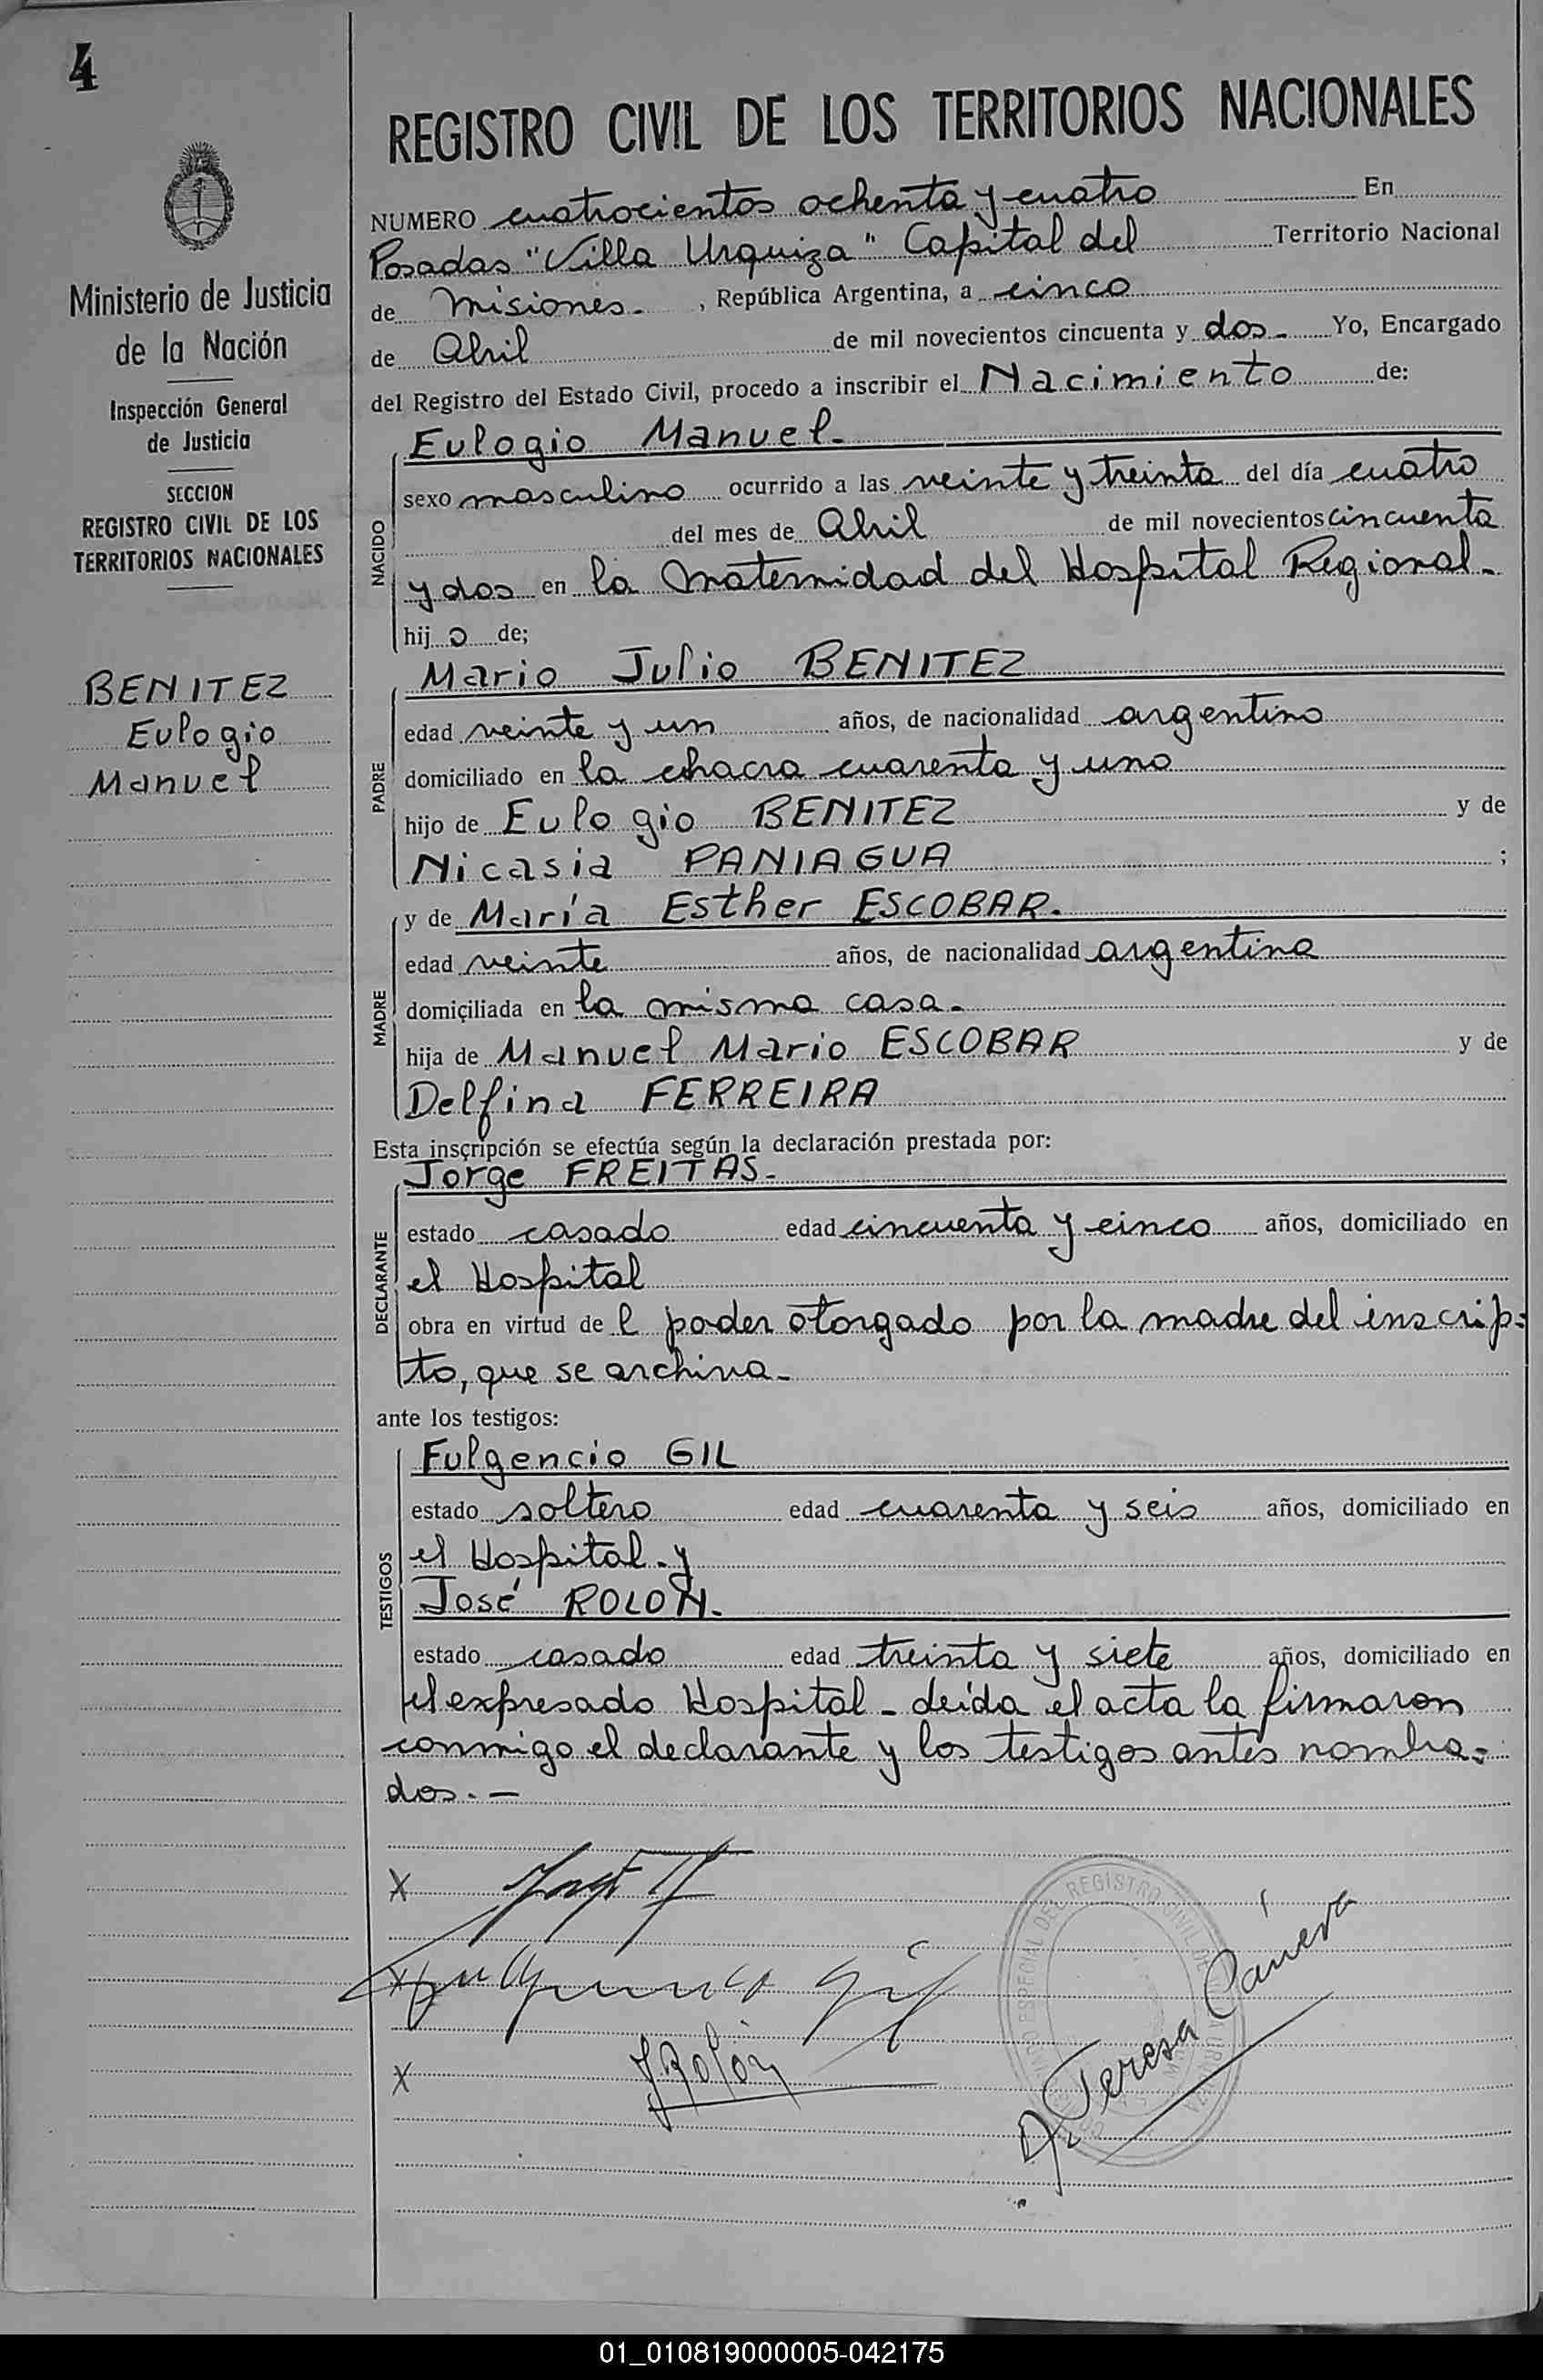 4
REGISTRO CIVIL DE LOS TERRITORIOS NACIONALES
Ministerio de Justicia
de la Nación
Inspección General
de Justicia
SECCION
REGISTRO CIVIL DE LOS
TERRITORIOS NACIONALES
BENITEZ
Eulogio
Manuel
NUMERO cuatrocientos ochenta y cuatro En
Posadas "Villa Urquiza" Capital del Territorio Nacional
de Misiones. , República Argentina, a cinco
de Abril de mil novecientos cincuenta y dos Yo, Encargado
del Registro del Estado Civil, procedo a inscribir el Nacimiento de:
NACIDO
Eulogio Manuel.
sexo masculino ocurrido a las veinte y treinta del día cuatro
del mes de Abril de mil novecientos cincuenta
y dos en la Maternidad del Hospital Regional.
hijo de;
PADRE
Mario Julio BENITEZ
edad veinte y un años, de nacionalidad argentino
domiciliado en la chacra cuarenta y uno
hijo de Eulogio BENITEZ y de
Nicasia PANIAGUA ;
MADRE
y de María Esther ESCOBAR.
edad veinte años, de nacionalidad argentina
domiciliada en la misma casa.
hija de Manuel Mario ESCOBAR y de
Delfina FERREIRA
Esta inscripción se efectúa según la declaración prestada por:
DECLARANTE
Jorge FREITAS.
estado casado edad cincuenta y cinco años, domiciliado en
el Hospital
obra en virtud de l poder otorgado por la madre del inscrip=
to, que se archiva.
ante los testigos:
TESTIGOS
Fulgencio GIL
estado soltero edad cuarenta y seis años, domiciliado en
el Hospital. y
José ROLON.
estado casado edad treinta y siete años, domiciliado en
el expresado Hospital - Leída el acta la firmaron
conmigo el declarante y los testigos antes nombra=
dos. —
X
X Fulgencio Gil
X J Rolón
Teresa Cáneva
01_010819000005-042175